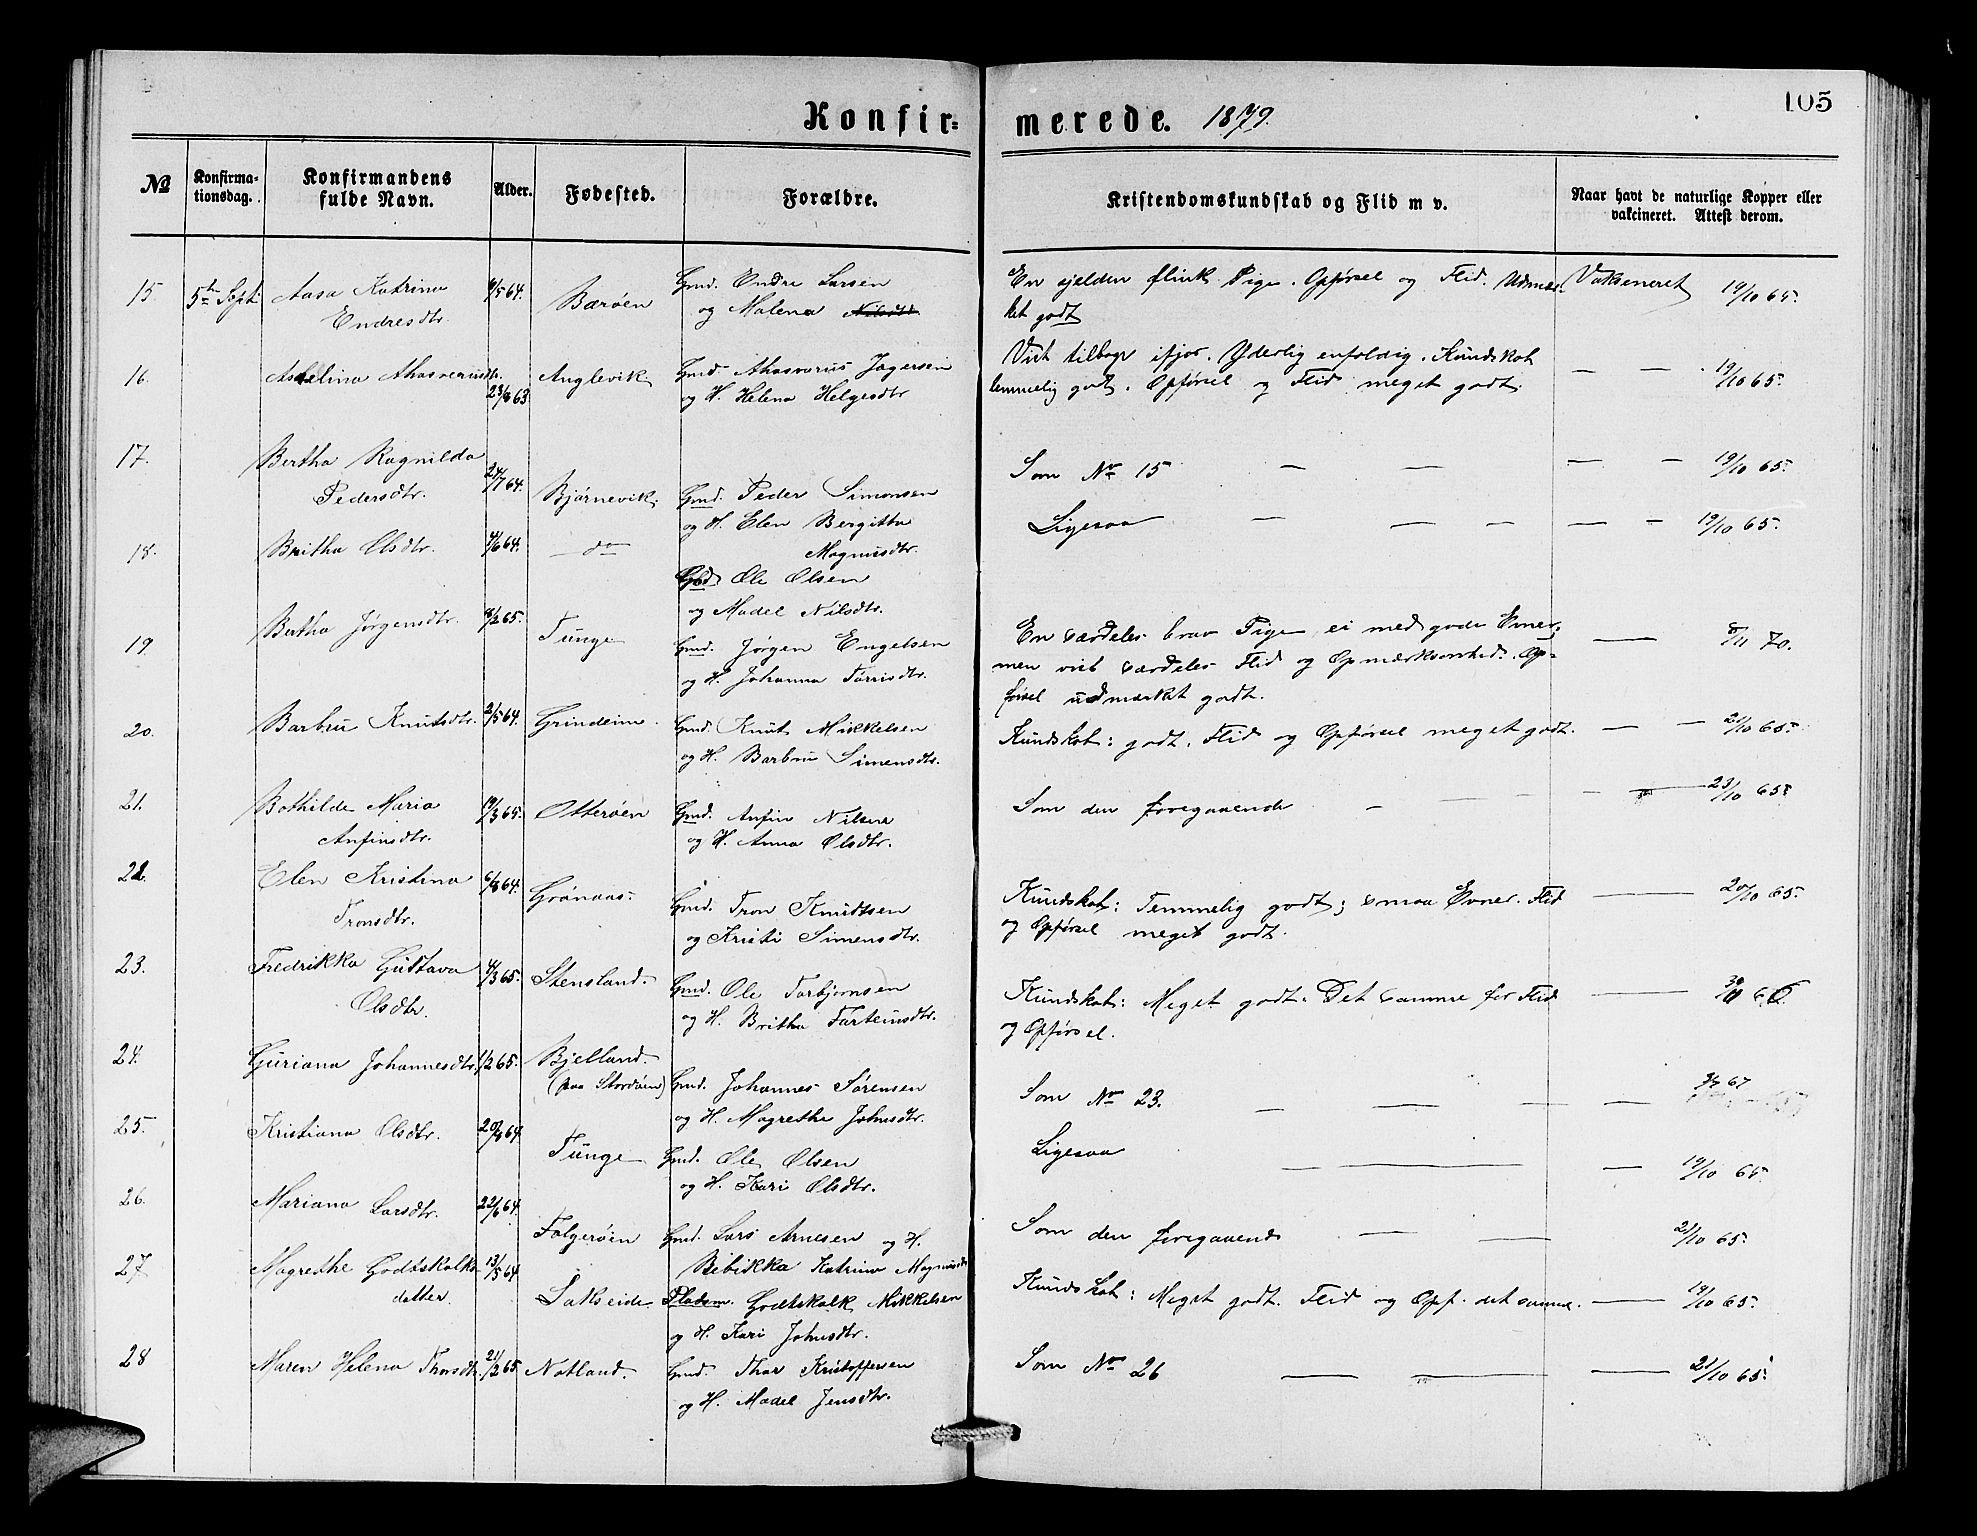 Konfir=merede. 1879.
105
№
Konfirma=
tionsdag.
Konfirmandens
fulde Navn.
Alder.
Fødested.
Forældre.
Kristendomskundskab og Flid m v.
Naar havt de naturlige Kopper eller
vakcineret. Attest derom.
15. 5te Sept. Aasa Katrina /5 64. Barøen Gmd. Endre Larsen En sjelden flink Pige. Opførsel og Flid. Udmær= Vakseneret 19/10 65.
Endresdtr. og Malena Nilsdtr. ket godt
16. Aselina Ahasverusdtr. 23/8 63 Anglevik Gmd. Ahasverus Jagersen Vist tilbage ifjor. Yderlig enfoldig. Kundskab — — 19/10 65.
og H. Helena Helgesdtr temmelig godt. Opførsel og Flid meget godt.
17. Bertha Ragnilda 24/7 64. Bjørnevik Gmd. Peder Simonsen Som No 15 — — — — 19/10 65.
Pedersdtr. og H. Elen Bergitha
Magnusdtr.
18. Britha Olsdtr. /6 64. do Gbd. Ole Olsen Ligesaa — — — — — 19/10 65.
og Madel Nilsdtr.
19 Bertha Jørgensdtr. 8/2 65. Tunge Gmd. Jørgen Engelsen En særdeles brav Pige, ei med gode Evner, — 8/11 70.
og H. Johanna Torrisdtr. men vist særdeles Flid og Opmærksomhed. Op=
førsel udmærket godt.
20. Barbru Knutsdtr. 2/5 64. Grindeim. Gmd. Knut Mikkelsen Kundskab: godt. Flid og Opførsel meget godt. — — 21/10 65.
og H. Barbru Simensdtr.
21. Bothilde Maria 19/3 65. Otterøen Gmd. Anfin Nilsen Som den foregaaende — — — — 23/10 65.
Anfinsdtr. og H. Anna Olsdtr.
22. Elen Kristina 6/8 64. Grønaas. Gmd. Tron Knudtsen Kundskab: Temmelig godt; smaa Evner. Flid — 20/10 65.
Tronsdtr. og Kristi Simensdtr. og Opførsel meget godt.
23. Fredrikka Gustava 4/3 65. Stensland. Gmd. Ole Torbjørnsen Kundskab: Meget godt. Det samme for Flid — 30/11 66.
Olsdtr. og H. Britha Torteinsdtr. og Opførsel.
24. Guriana Johannesdtr. 1/2 65. Bjelland Gmd. Johannes Sørensen Som No 23. — — — — 67
(paa Stordøen) og H. Magrethe Johnsdtr.
25. Kristiana Olsdtr. 20/ 64 Tunge Gmd. Ole Olsen Ligesaa — — — 19/10 65.
og H. Kari Olsdtr.
26. Mariana Larsdtr. 22/6 64. Folgerøen Gmd. Lars Arnesen og H. Som den foregaaende — — 21/10 65.
Bebikka Katrina Magnusdtr
27 Magrethe Godtskalks 13/5 64 Sakseide Pladsm. Godtskalk Mikkelsen Kundskab: Meget godt. Flid og Opf. det samme. — 19/10 65.
datter. og H. Kari Johnsdtr.
28 Maren Helena Thorsdtr. 21/2 65. Notland. Gmd. Thor Kristoffersen Som No 26 — — — 21/10 65.
og H. Madel Jensdtr.